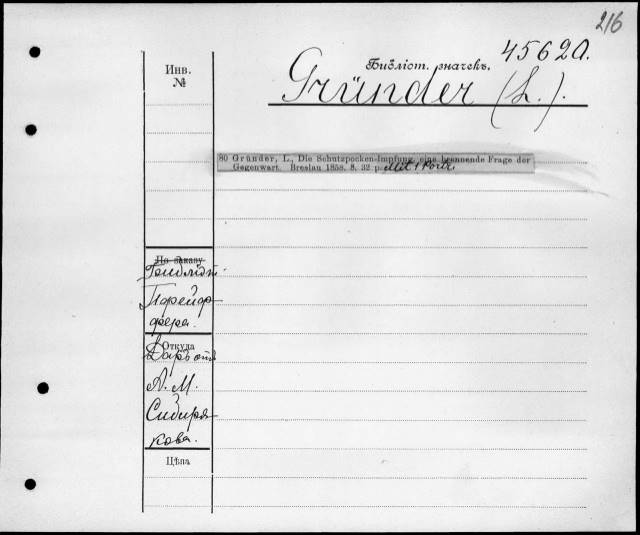 216
45620.
Инв.
№
Библіот. значекъ.
Gründer (L.).
80 Gründer, L., Die Schutzpocken-Impfung, eine brennende Frage der
Gegenwart. Breslau 1858. 8. 32 p. Mit 1 Portr.
По заказу
Библіот.
Пфейф-
фера.
Откуда
Даръ отъ
А. М.
Сибиря-
кова.
Цѣна